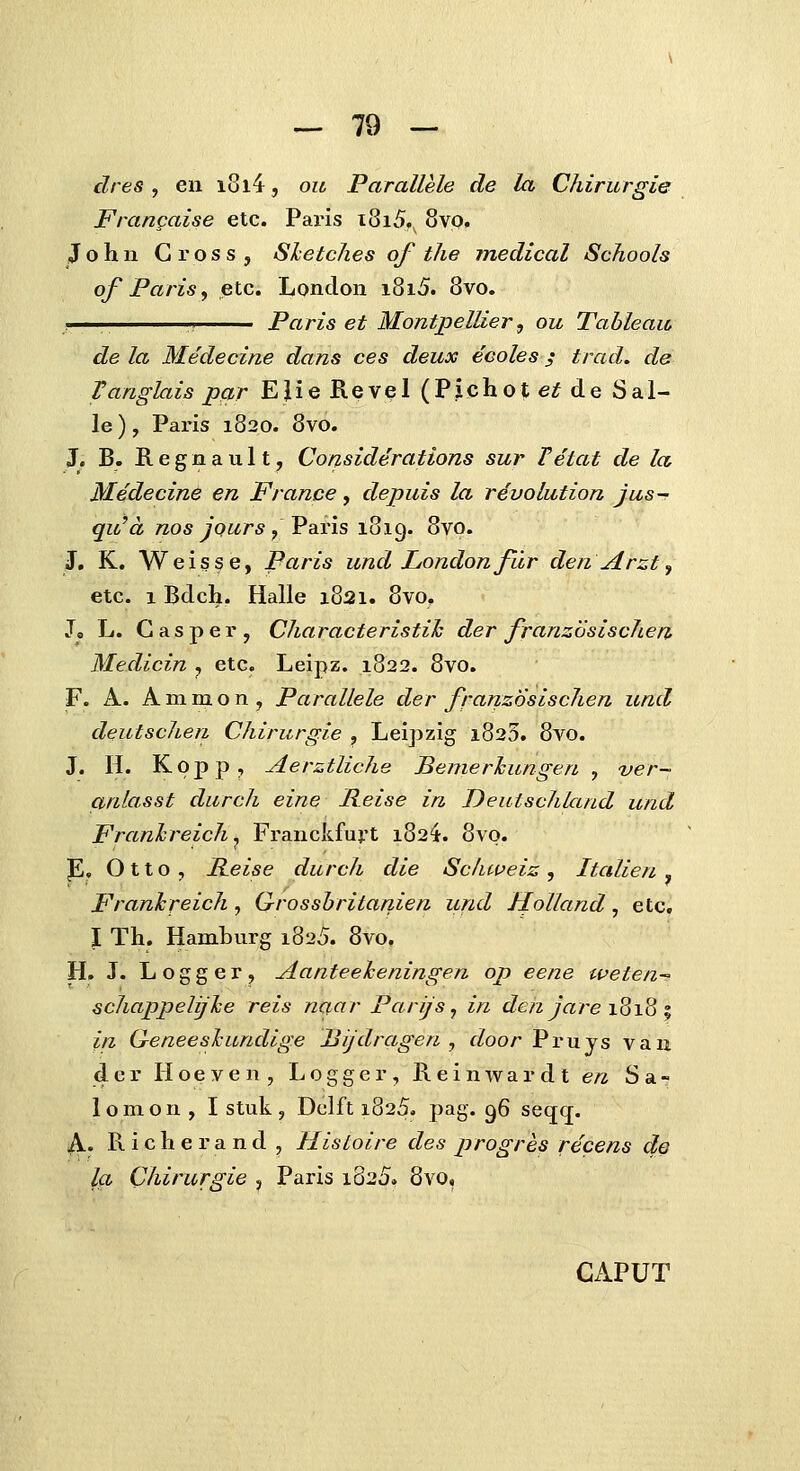 — 79 —
dres, en 1814, ou Parallèle de la Chirurgie
Française etc. Paris 1815. 8vo.
John Cross, Sketches of the medical Schools
of Paris, etc. London 1815. 8vo.
——— Paris et Montpellier, ou Tableau
de la Médecine dans ces deux écoles; trad. de
l'anglais par Elie Revel (Pichot et de Sal-
le), Paris 1820. 8vo.
J. B. Regnault, Considérations sur l'état de la
Médecine en France, depuis la révolution jus-
qu'à nos jours, Paris 1819. 8vo.
J. K. Weisse, Paris und London für den Arzt,
etc. 1 Bdch. Halle 1821. 8vo.
J. L. Casper, Characteristik der französischen
Medicin, etc. Leipz. 1822. 8vo.
F. A. Ammon, Parallele der französischen und
deutschen Chirurgie, Leipzig 1823. 8vo.
J. H. Kopp, Aerztliche Bemerkungen, ver-
anlasst durch eine Reise in Deutschland und
Frankreich, Franckfurt 1824. 8vo.
E. Otto, Reise durch die Schweiz, Italien,
Frankreich, Grossbritanien und Holland, etc.
I Th. Hamburg 1825. 8vo.
H. J. Logger, Aanteekeningen op eene weten-
schappelijke reis naar Parijs, in den jare 1818;
in Geneeskundige Bijdragen, door Pruys van
der Hoeven, Logger, Reinwardt en Sa-
lomon, I stuk, Delft 1825. pag. 96 seqq.
A. Richerand, Histoire des progrès récens de
la Chirurgie, Paris 1825. 8vo,
CAPUT